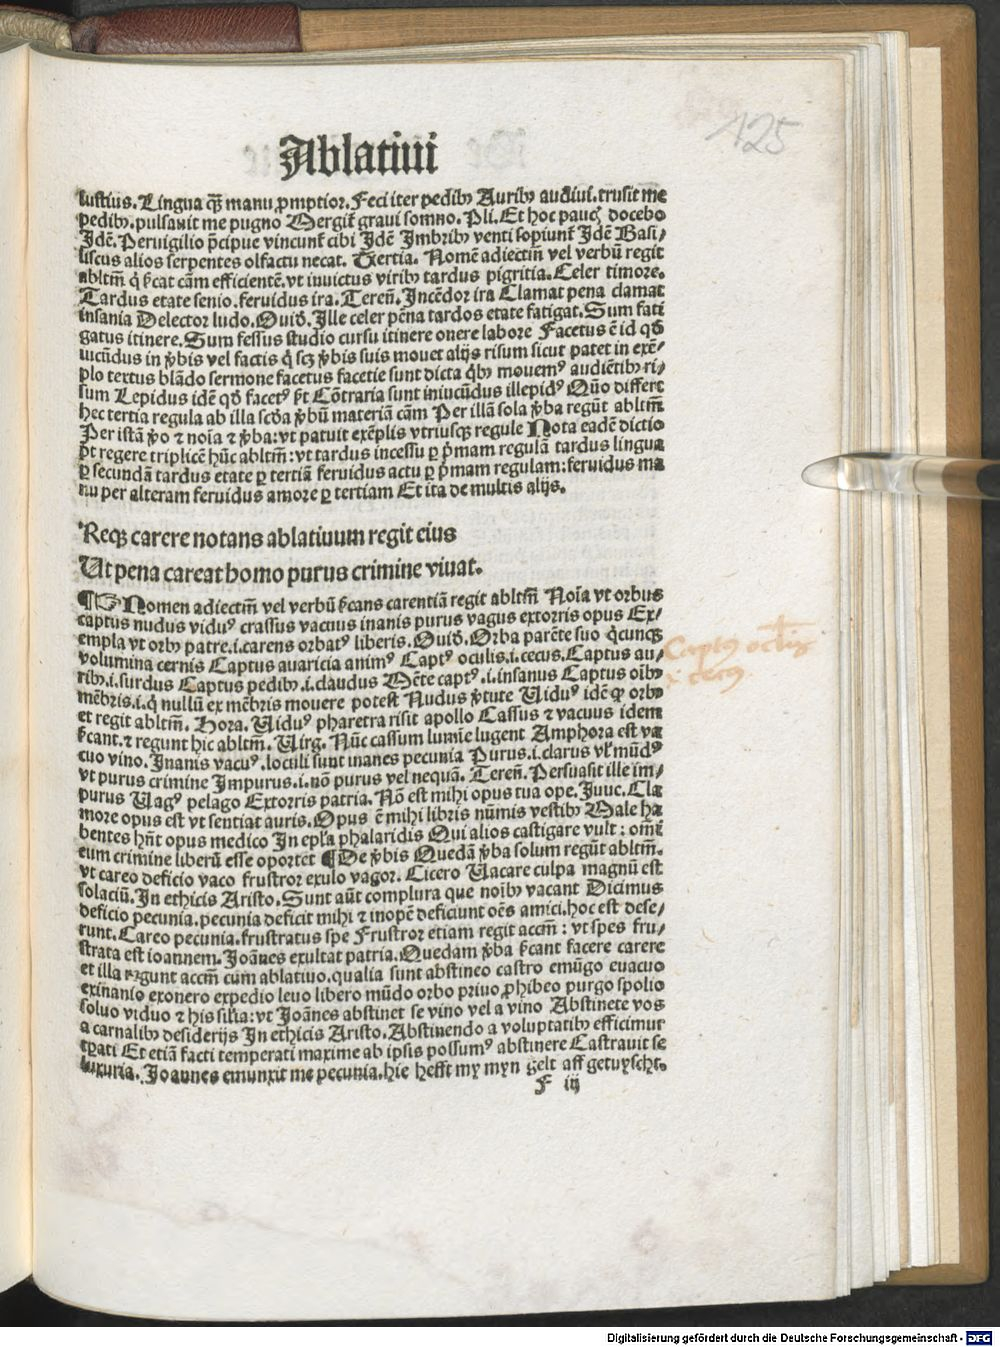 125
Ablatiui
lustius. Lingua qȝ̃ manu ꝓmptior. Feci iter pedibꝫ Auribꝫ audiui. trusit me
pedibꝫ. pulsauit me pugno Mergit̃ graui somno. Pli. Et hoc paucꝭ docebo
Idẽ. Peruigilio p̃cipue vincunt̃ cibi Idẽ Imbribꝫ venti sopiunt̃ Idẽ Basi⸗
liscus alios serpentes olfactu necat. Tertia. Nomẽ adiectiṽ vel verbũ regit
ablt̃m q̇ ſ̃cat cãm efficientẽ. vt inuictus viribꝫ tardus pigritia. Celer timore.
Tardus etate senio. feruidus ira. Tereñ. Incẽdor ira Clamat pena clamat
insania Delector ludo. Ouid̃. Ille celer pẽna tardos etate fatigat. Sum fati
gatus itinere. Sum fessus studio cursu itinere onere labore Facetus ẽ id qd̃
iucũdus in v̓bis vel factis q̇ scꝫ v̓bis suis mouet alijs risum sicut patet in exẽ⸗
plo textus blãdo sermone facetus facetie sunt dicta qͥbꝫ mouemꝰ audiẽtibꝫ ri⸗
sum Lepidus idẽ qd̃ facetꝰ ſ̃t Cõtraria sunt iniucũdus illepidꝰ Quo differt
hec tertia regula ab illa scd̃a v̓bũ materiã cãm Per illã sola v̓ba regũt ablt̃m
Per istã v̓o ⁊ noĩa ⁊ v̓ba: vt patuit exẽplis vtriusqꝫ regule Nota eadẽ dictio
p̃t regere triplicẽ hũc ablt̃m: vt tardus incessu ꝑ p̃mam regulã tardus lingua
ꝑ secundã tardus etate ꝑ tertiã feruidus actu ꝑ p̃mam regulam: feruidus ma
nu per alteram feruidus amore ꝑ tertiam Et ita de multis alijs.
Reqꝫ carere notans ablatiuum regit eius
Ut pena careat homo purus crimine viuat.
¶ Nomen adiectiṽ vel verbũ ſ̃cans carentiã regit ablt̃m Noĩa vt orbus
captus nudus viduꝰ crassus vacuus inanis purus vagus extorris opus Ex⸗
empla vt orbꝰ patre .i. carens orbatꝰ liberis. Ouid̃. Orba parẽte suo q̇cunqꝫ
volumina cernis Captus auaricia animꝰ Captꝰ oculis .i. cecus. Captus au⸗
ribꝫ .i. surdus Captus pedibꝫ .i. claudus Mẽte captꝰ .i. insanus Captus oĩbꝫ
mẽbris .i. q̇ nullũ ex mẽbris mouere potest Nudus v̓tute Uiduꝰ idẽ ꝙ orbꝰ
et regit ablt̃m. Hora. Uiduꝰ pharetra risit apollo Cassus ⁊ vacuus idem
ſ̃cant. ⁊ regunt hic ablt̃m. Uirg. Nũc cassum lumĩe lugent Amphora est va
cuo vino. Inanis vacuꝰ. loculi sunt inanes pecunia Purus .i. clarus vl̃ mũdꝰ
vt purus crimine Impurus .i. nõ purus vel nequã. Tereñ. Persuasit ille im⸗
purus Uagꝰ pelago Extorris patria. Nõ est mihi opus tua ope. Juuc. Cla
more opus est vt sentiat auris. Opus ẽ mihi libris nũmis vestibꝫ Male ha
bentes hñt opus medico In epl̃a phalaridis Qui alios castigare vult: om̃i
eum crimine liberũ esse oportet ¶ De v̓bis Quedã v̓ba solum regũt ablt̃m.
vt careo deficio vaco frustror exulo vagor. Cicero Uacare culpa magnũ est
solaciũ. In ethicis Aristo. Sunt aũt complura que noĩbꝫ vacant Dicimus
deficio pecunia. pecunia deficit mihi ⁊ inopẽ deficiunt oẽs amici. hoc est dese⸗
runt. Careo pecunia. frustratus spe Frustror etiam regit accm̃: vt spes fru⸗
strata est ioannem. Ioãnes exultat patria. Quedam v̓ba ſ̃cant facere carere
et illa regunt accm̃ cum ablatiuo. qualia sunt abstineo castro emũgo euacuo
exinanio exonero expedio leuo libero mũdo orbo priuo ꝓhibeo purgo spolio
soluo viduo ⁊ his sil̃ia: vt Ioãnes abstinet se vino vel a vino Abstinete vos
a carnalibꝫ desiderijs In ethicis Aristo. Abstinendo a voluptatibꝫ efficimur
tp̃ati Et etiã facti temperati maxime ab ipsis possumꝰ abstinere Castrauit se
luxuria. Ioannes emunxit me pecunia. hie hefft my myn gelt aff getuyscht.
F iij
Captꝰ oclis
i. cecus
Digitalisierung gefördert durch die Deutsche Forschungsgemeinschaft - DFG